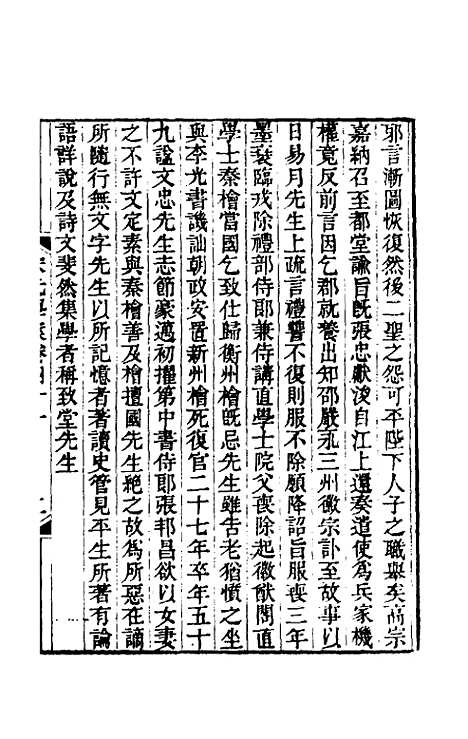 耶言漸圖恢復然後二聖之怨可平陛下人子之職舉矣高宗
嘉納召至都堂諭旨旣張忠獻浚自江上還奏遣使爲兵家機
權竟反前言因乞郡就養出知邵嚴永三州徽宗訃至故事以
日易月先生上疏言禮讐不復則服不除願降詔旨服喪三年
墨衰臨戎除禮部侍郎兼侍講直學士院父喪除起徽猷閣直
學士秦檜當國乞致仕歸衡州檜旣忌先生雖告老猶憤之坐
與李光書譏訕朝政安置新州檜死復官二十七年卒年五十
九諡文忠先生志節豪邁初擢第中書侍郎張邦昌欲以女妻
之不許文定素與秦檜善及檜擅國先生絶之故爲所惡在謫
所隨行無文字先生以所記憶者著讀史管見平生所著有論
語詳說及詩文斐然集學者稱致堂先生
宋元學案卷四十一